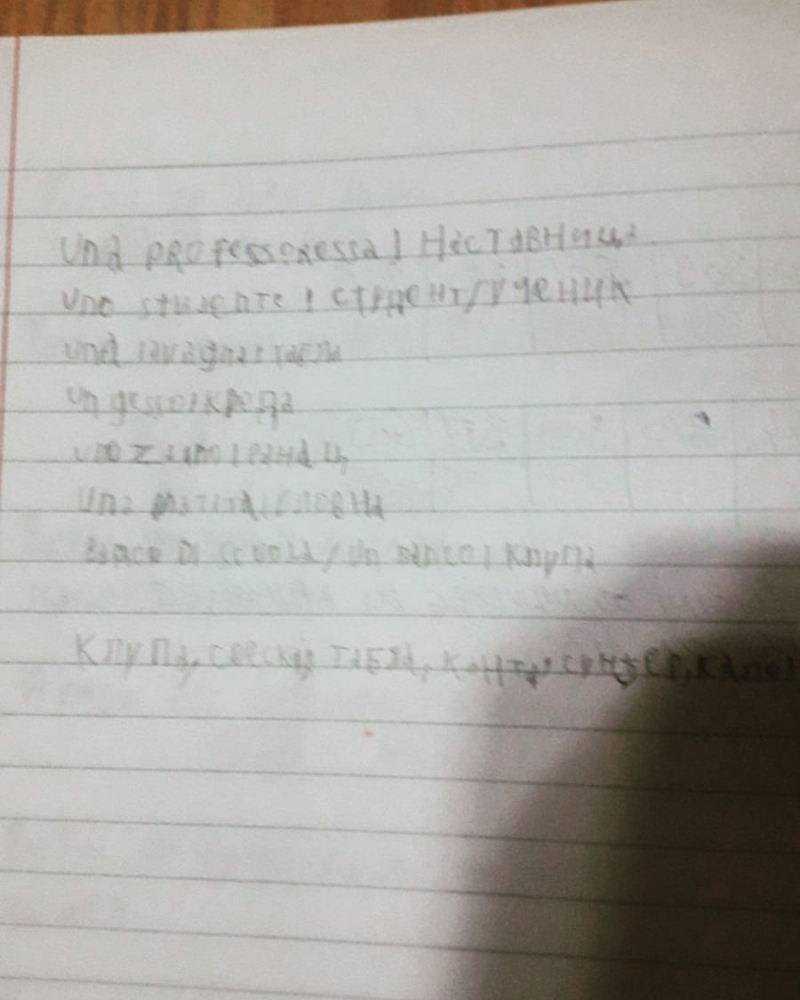 Una professoressa | Наставница
Uno studente | Студент/Ученик
Una lavagna | Табла
Un gesso | Креда
Uno zaino | Ранац
Una matita | Оловка
Banco Di scuola / Un banco | Клупа
Клупа, Сveska, Табла, Канта, Сунѓер,